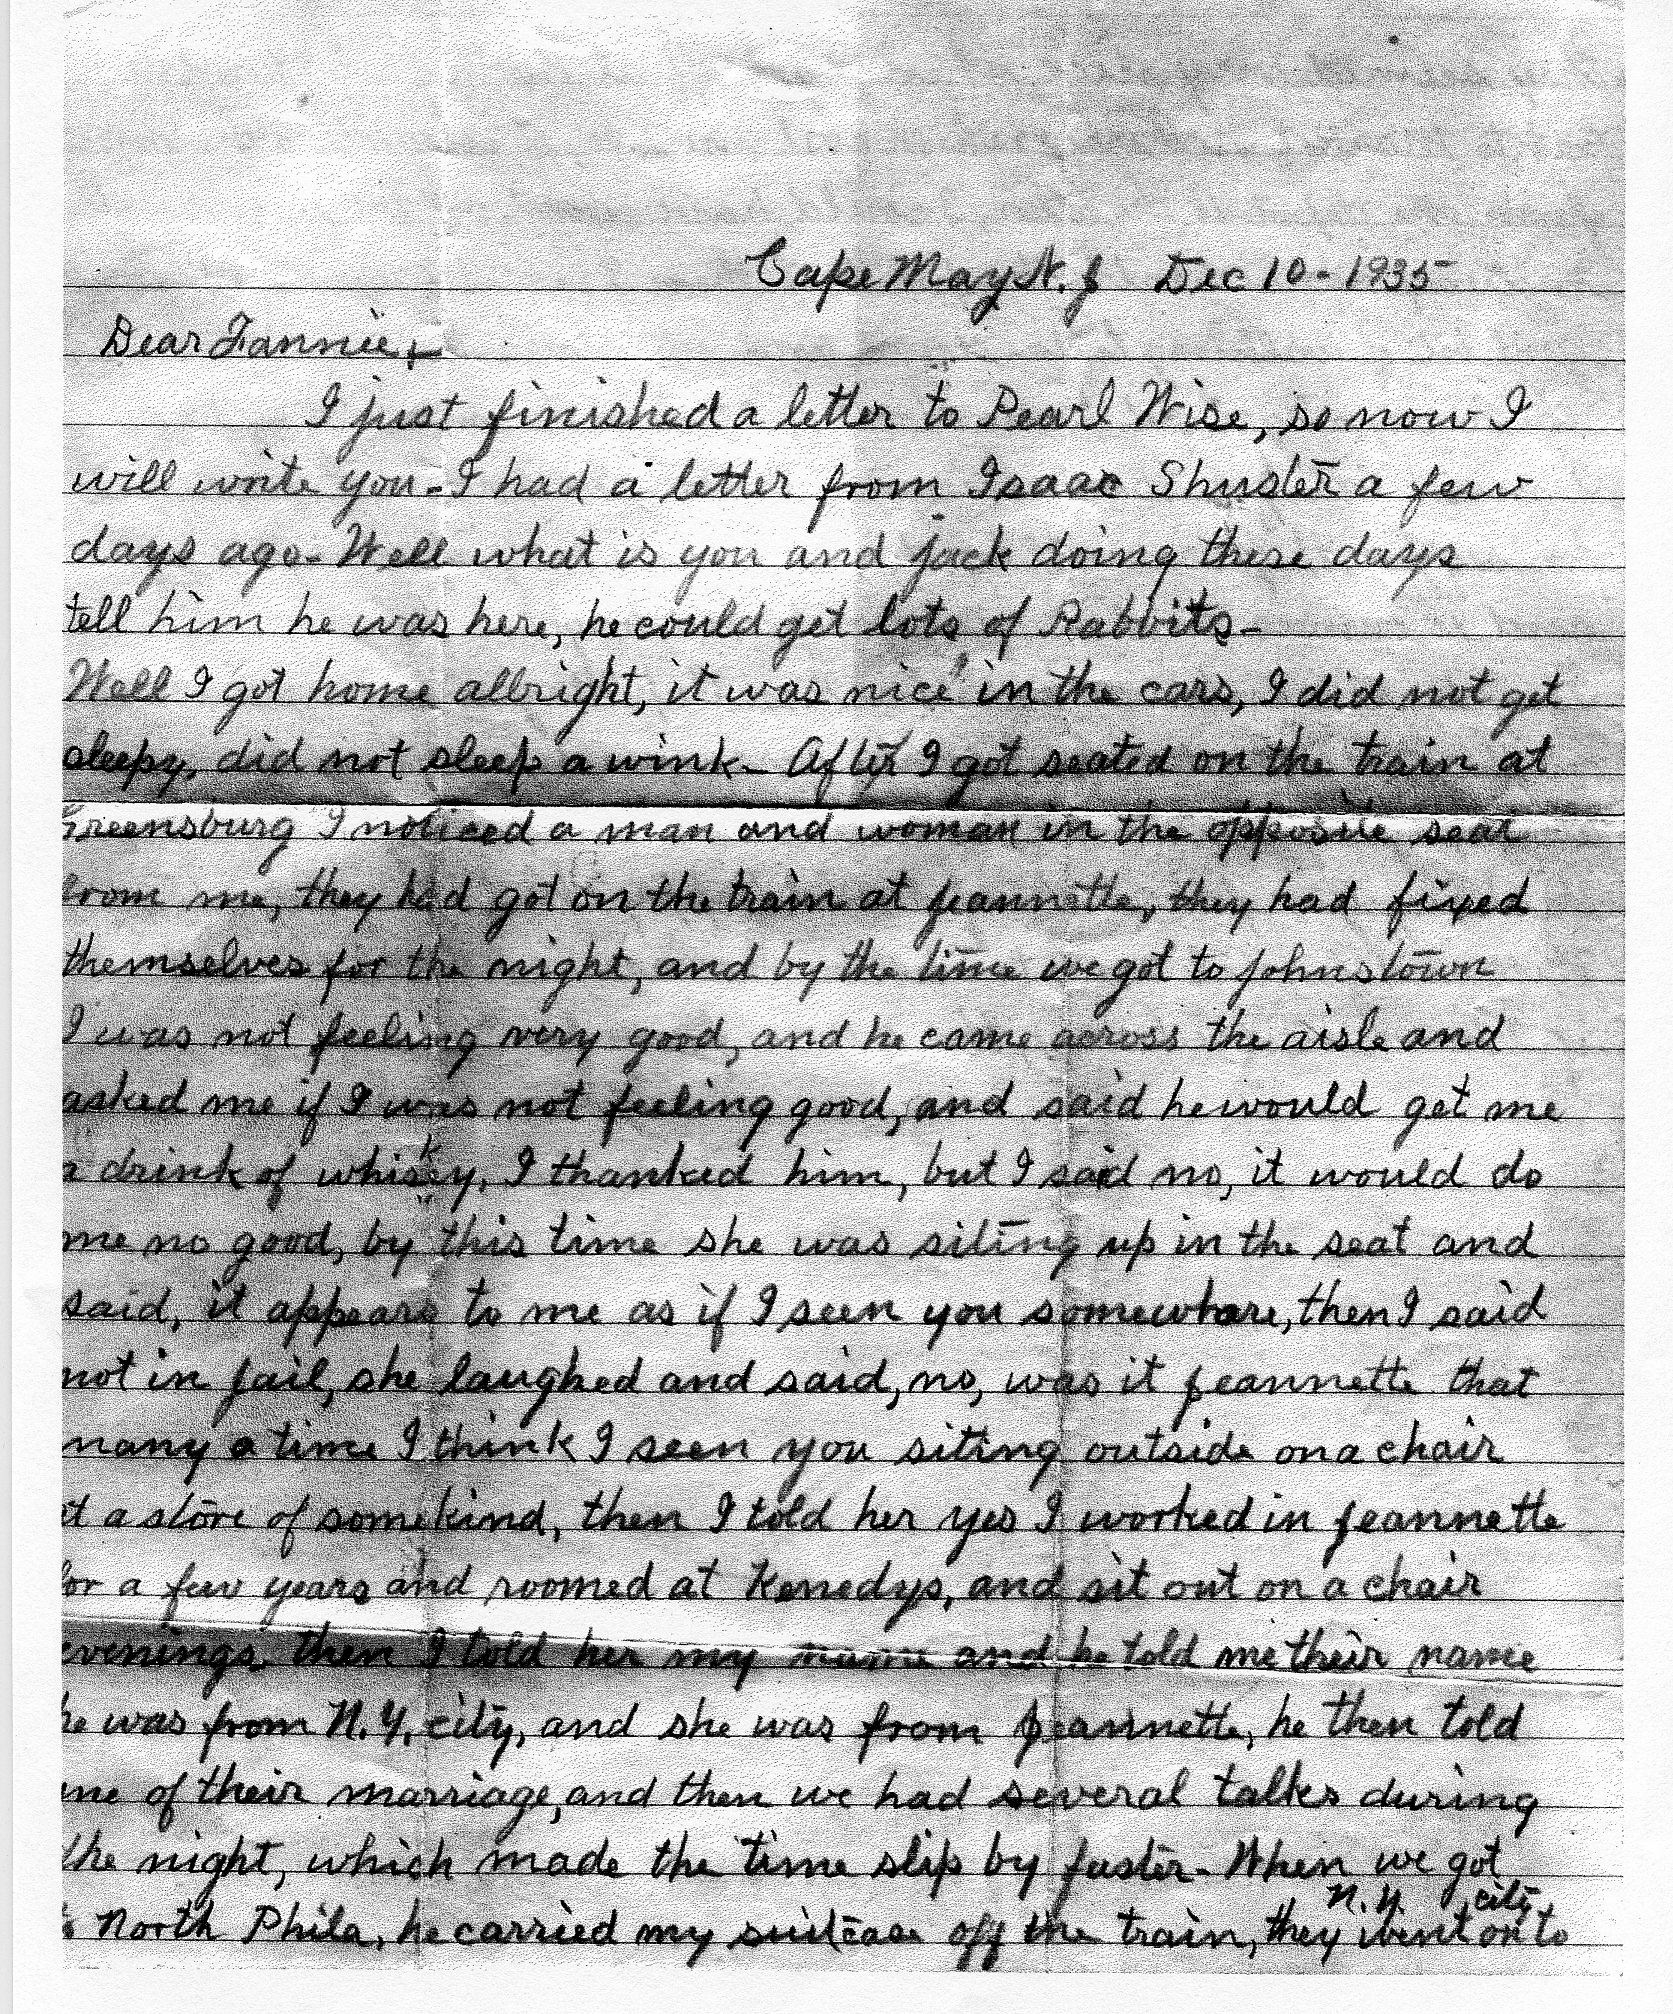 Cape May N.J Dec 10-1935
Dear Fannie,
I just finished a letter to Pearl Wise, so now I
will write you-I had a letter from Isaac Shuster a few
days ago-Well what is you and Jack doing these days
tell him he was here, he could get lots of Rabbits-
Well I got home allright, it was nice in the cars, I did not get
sleepy, did not sleep a wink- After I got seated on the train at
Greensburg I noticed a man and woman in the opposite seat
from me, they had got on the train at Jeannette, they had fixed
themselves for the night, and by the time we got to Johnstown
I was not feeling very good, and he came across the aisle and
asked me if I was not feeling good, and said he would get me
a drink of whisky, I thanked him, but I said no, it would do
me no good, by this time she was siting up in the seat and
said, it appears to me as if I seen you somewhare, then I said
not in jail, she laughed and said, no, was it Jeannette that
many a time I think I seen you siting outside on a chair
at a store of some kind, then I told her yes I worked in Jeannette
for a few years and roomed at Kenedys, and sit out on a chair
evenings, then I told her my name and he told me their name
he was from N.Y. city, and she was from Jeannette, he then told
me of their marriage, and then we had several talks during
the night, which made the time slip by faster-When we got
N.Y. city
to North Phila, he carried my suitcase off the train, they went on to